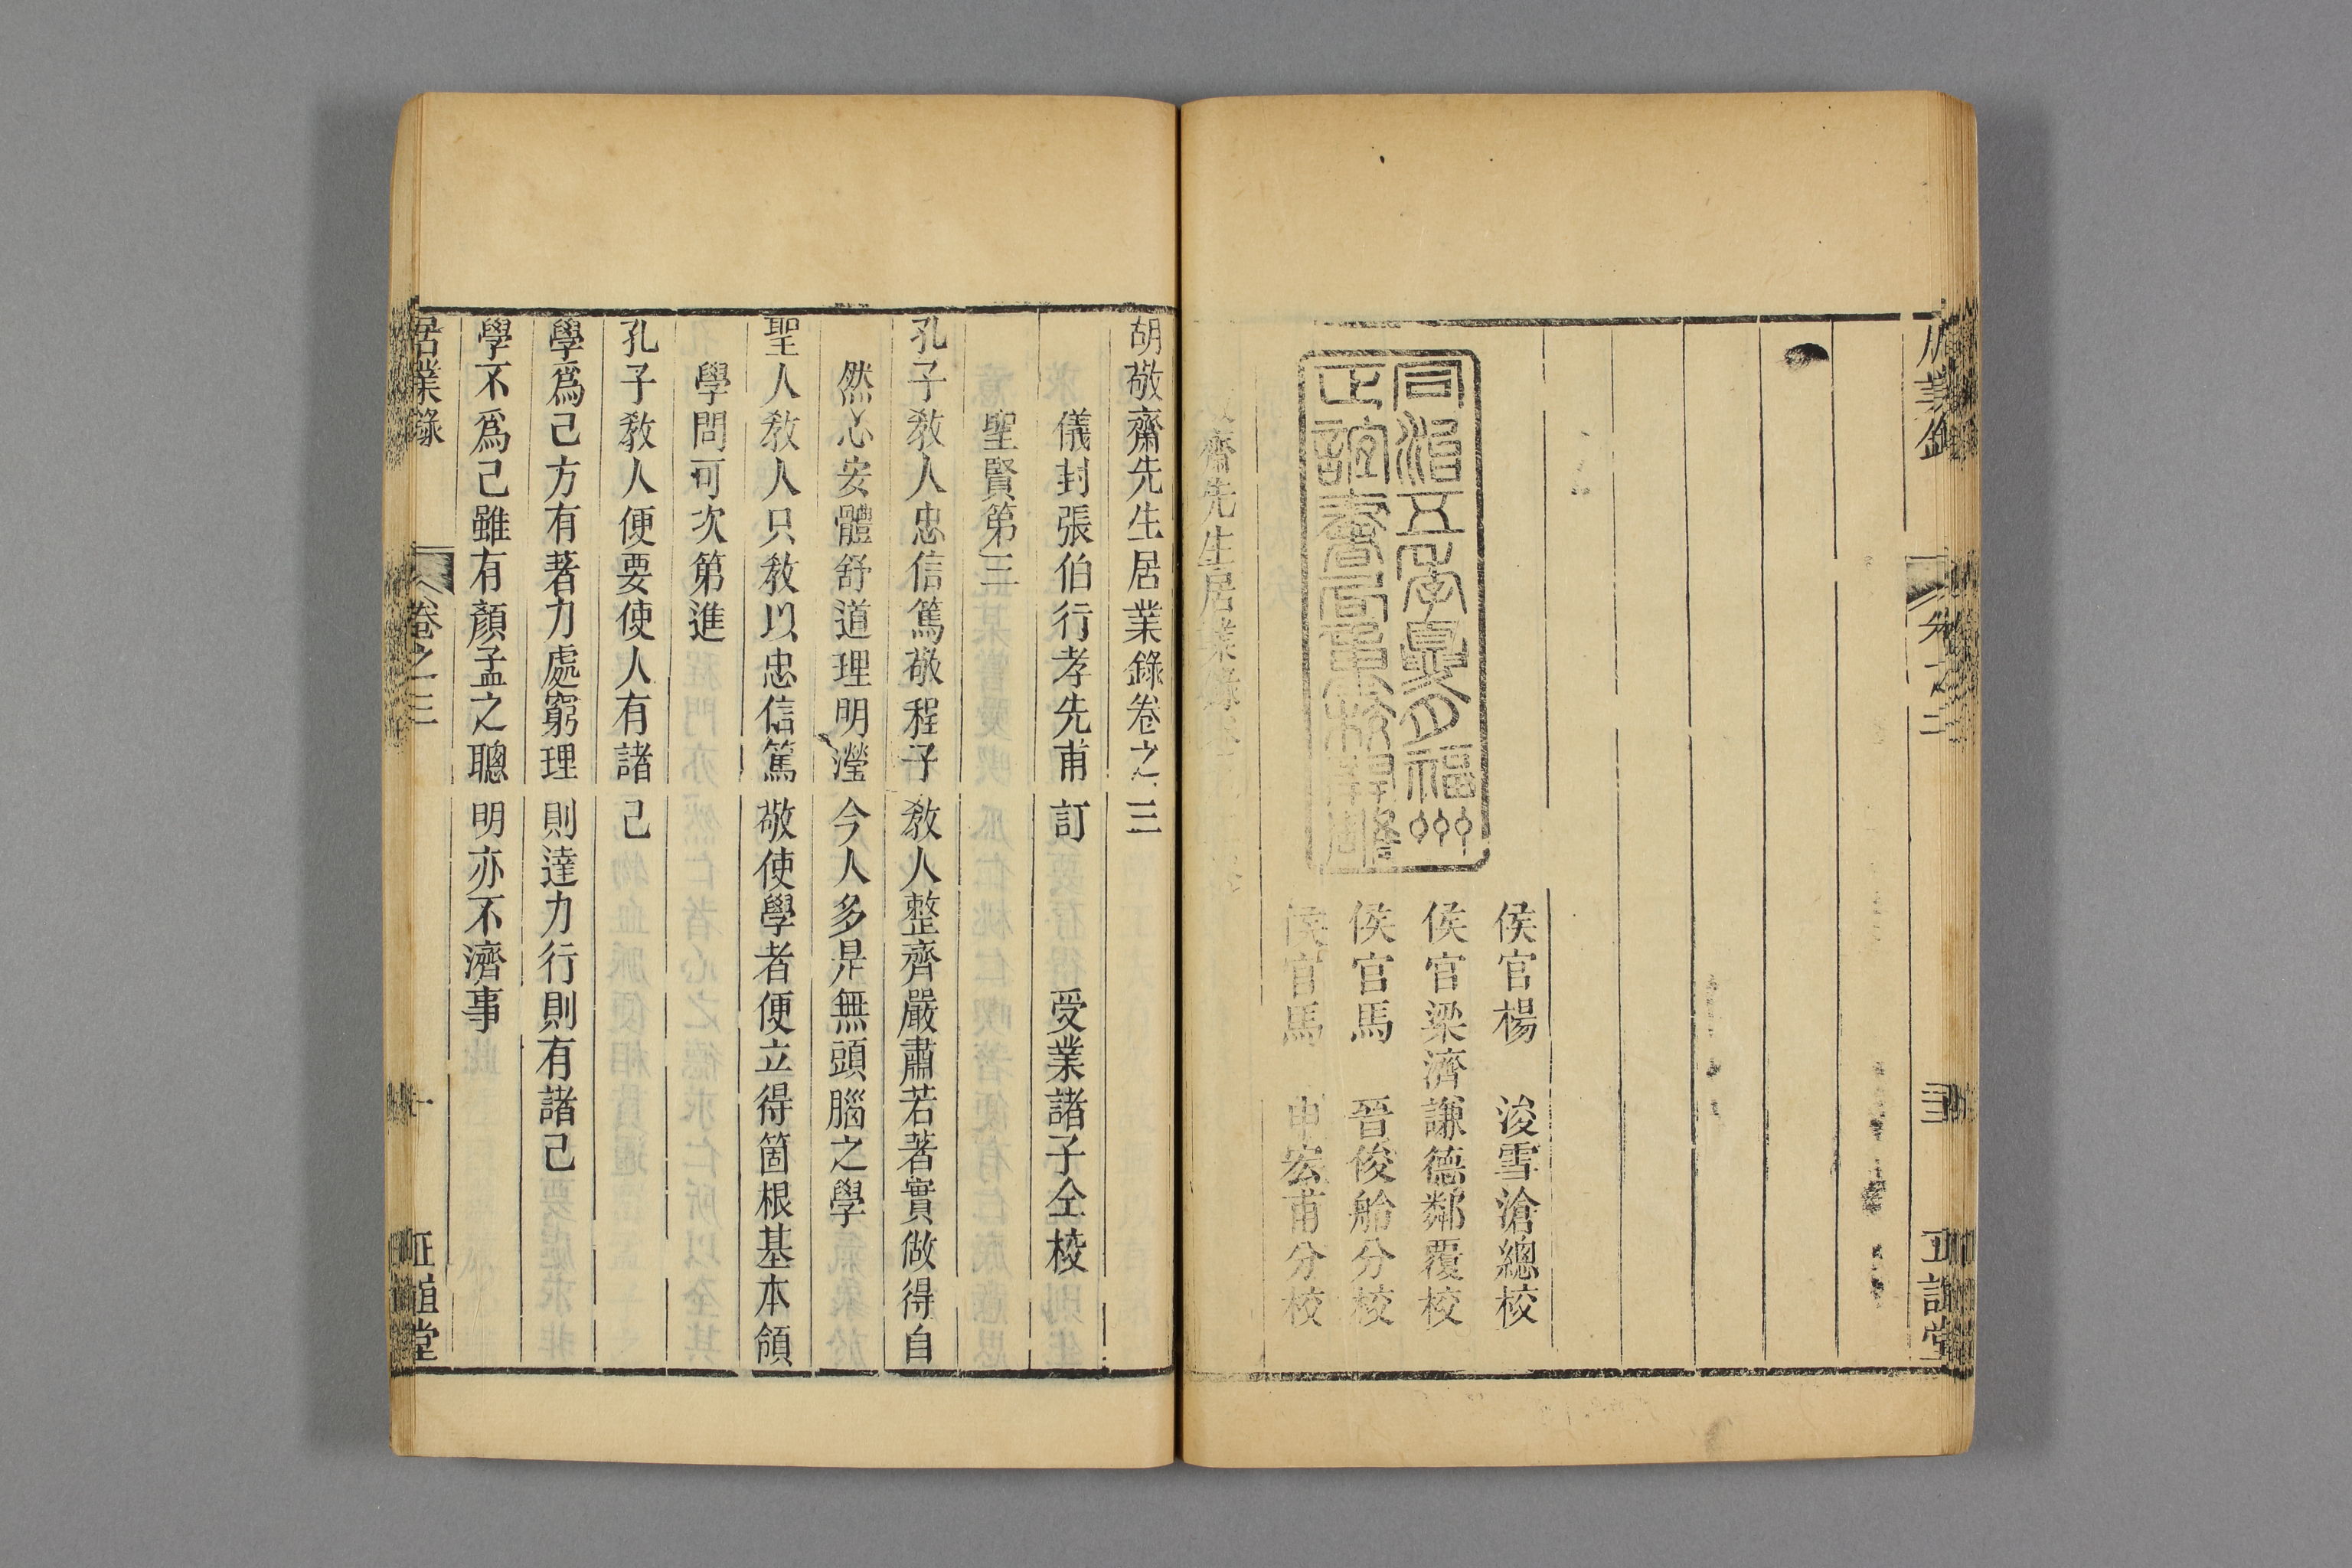 居業錄
卷之二
正誼堂
同治五年夏月福州
正誼書局重校開雕
侯官楊 浚雪滄總校
侯官梁濟謙德鄰覆校
侯官馬 晉俊舲分校
侯官馬 申宏甫分校
齋先生居業錄
胡敬齋先生居業錄卷之三
儀封張伯行孝先甫訂 受業諸子仝校
聖賢第三
孔子敎人忠信篤敬程子敎人整齊嚴肅若著實做得自
然心安體舒道理明瀅今人多是無頭腦之學
聖人敎人只敎以忠信篤敬使學者便立得箇根基本領
學問可次第進
孔子敎人便要使人有諸己
學爲己方有著力處窮理則達力行則有諸己
學不爲己雖有顏孟之聰明亦不濟事
居業錄
卷之三
一
正誼堂